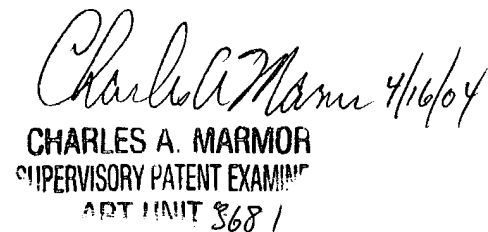 Charles A Marmor 4/16/04
CHARLES A. MARMOR
SUPERVISORY PATENT EXAMINE
ART UNIT 3681